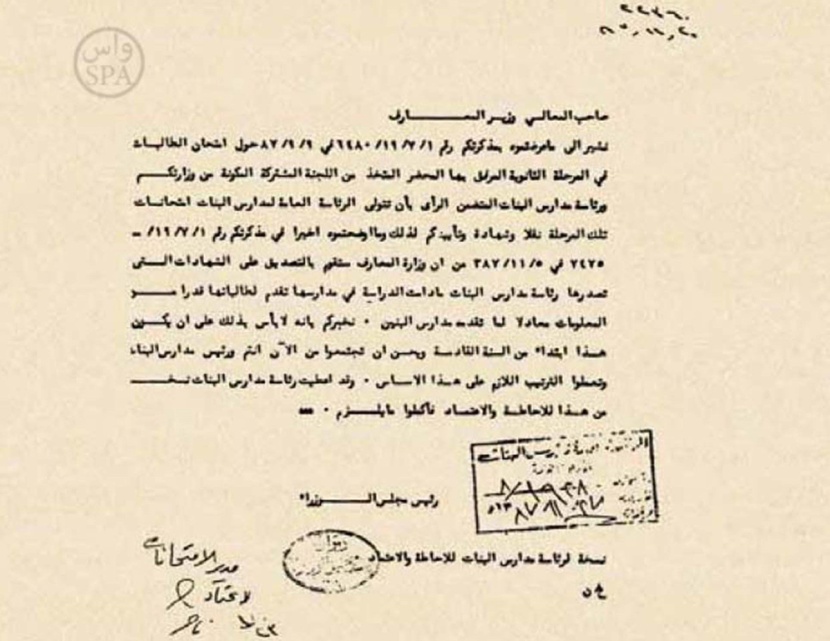 ٢٢٣٦٠
٨٧/١١/٢٠
واس
SPA
صاحب المعالي وزير المعارف
نشير الى ماعرضتموه بمذكرتكم رقم ١٩/٧/١/ ٦٤٨٠ في ٨٧/٩/٩ حول امتحان الطالبات
في المرحلة الثانوية المرفق بها المحضر المتخذ من اللجنة المشتركة المكونة من وزارتكم
ورئاسة مدارس البنات المتضمن الرأى بأن تتولى الرئاسة العامة لمدارس البنات امتحانات
تلك المرحلة نقلا وشهادة وتأييدكم لذلك وما اوضحتموه اخيرا في مذكرتكم رقم ١٩/٧/١/ ــ
٧٤٢٥ في ٣٨٧/١١/٥ من ان وزارة المعارف ستقوم بالتصديق على الشهادات التى
تصدرها رئاسة مدارس البنات مادامت الدراسة في مدارسها تقدم لطالباتها قدرا من
المعلومات معادلا لما تقدمه مدارس البنين ٠ نخبركم بانه لا بأس بذلك على ان يكون
هذا ابتداء من السنة القادمة ويحسن ان تجتمعوا من الآن انتم ورئيس مدارس البنات
وتعملوا الترتيب اللازم على هذا الاساس ٠ وقد اعطيت رئاسة مدارس البنات نسخة
من هذا للاحاطة والاعتماد فأكملوا مايلزم ٠
الرئاسة العامة لمدارس البنات
رئيس مجلس الوزراء
ديوان
نسخة لرئاسة مدارس البنات للاحاطة والاعتماد
مدير الامتحانات
لاعتماد